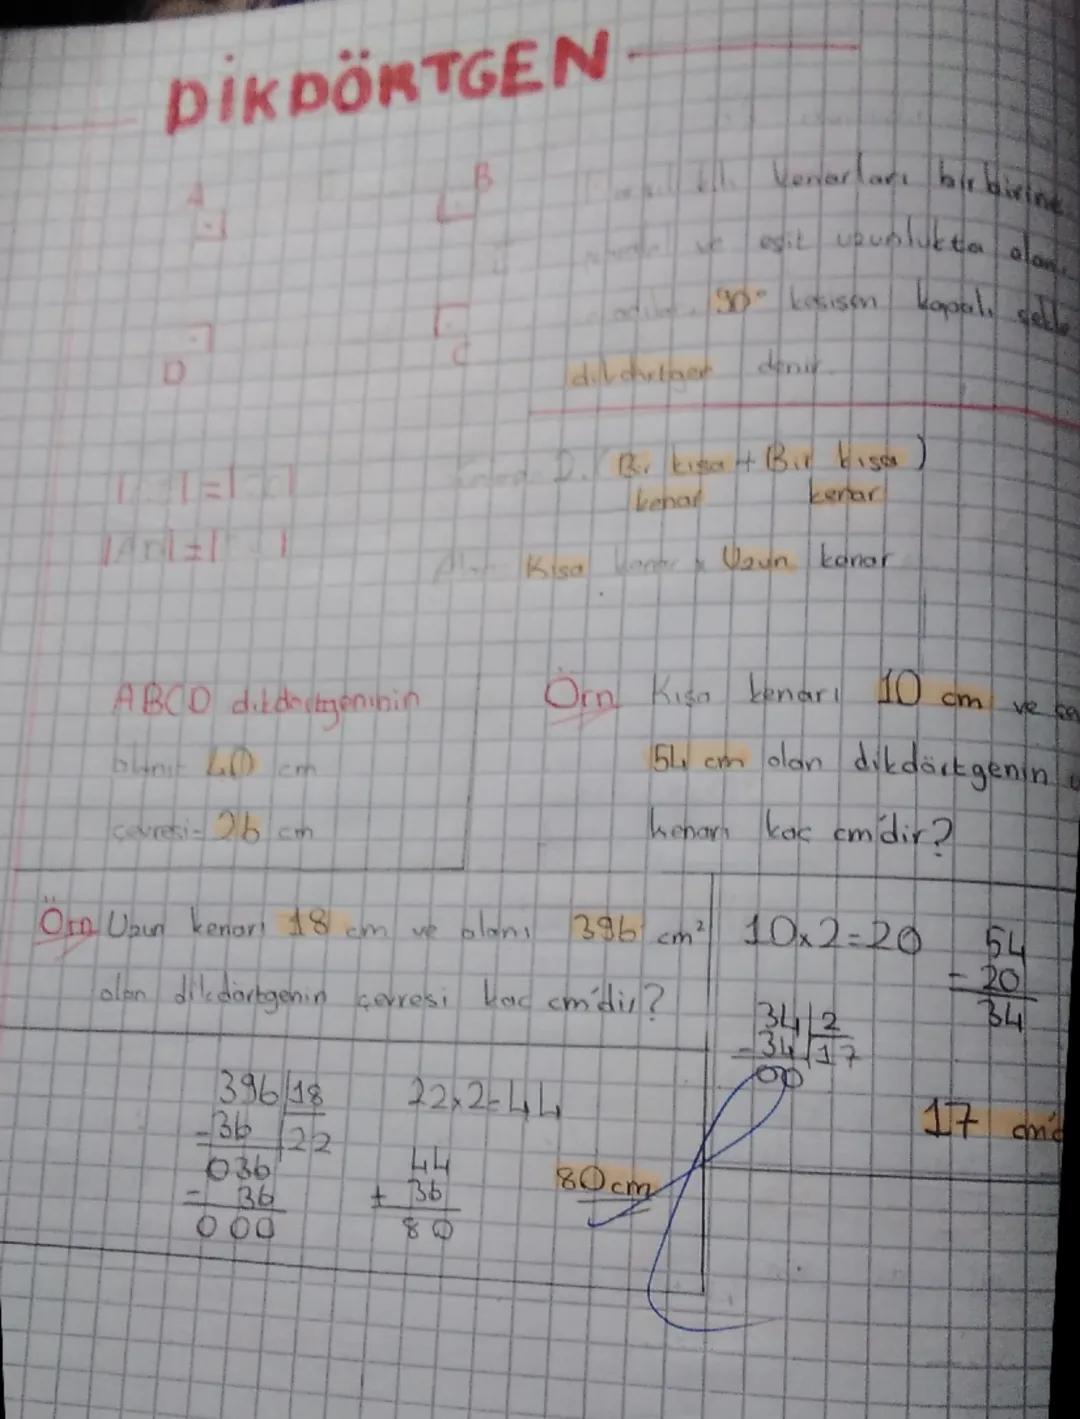 DİKDÖRTGEN
A
B
kenarları birbirine
ve eşit uzunlukta olan
90° kesişen kapalı şekle
D
C
dikdörtgen denir
(Bir kısa + (Bir kısa)
kenar kenar
Kısa kenar x Uzun kenar
ABCD dikdörtgeninin
alanı= 40 cm
çevresi= 26 cm
Örn Kısa kenarı 10 cm ve
54 cm olan dikdörtgenin
kenarı kaç cm'dir?
Örn Uzun kenarı 18 cm ve alanı 396 cm²
olan dikdörtgenin çevresi kaç cm'dir?
10x2=20
54
- 20
34
34 2
- 34 17
00
17
396 18
- 36 22
036
- 36
000
22x2=44
44
+ 36
80
80 cm